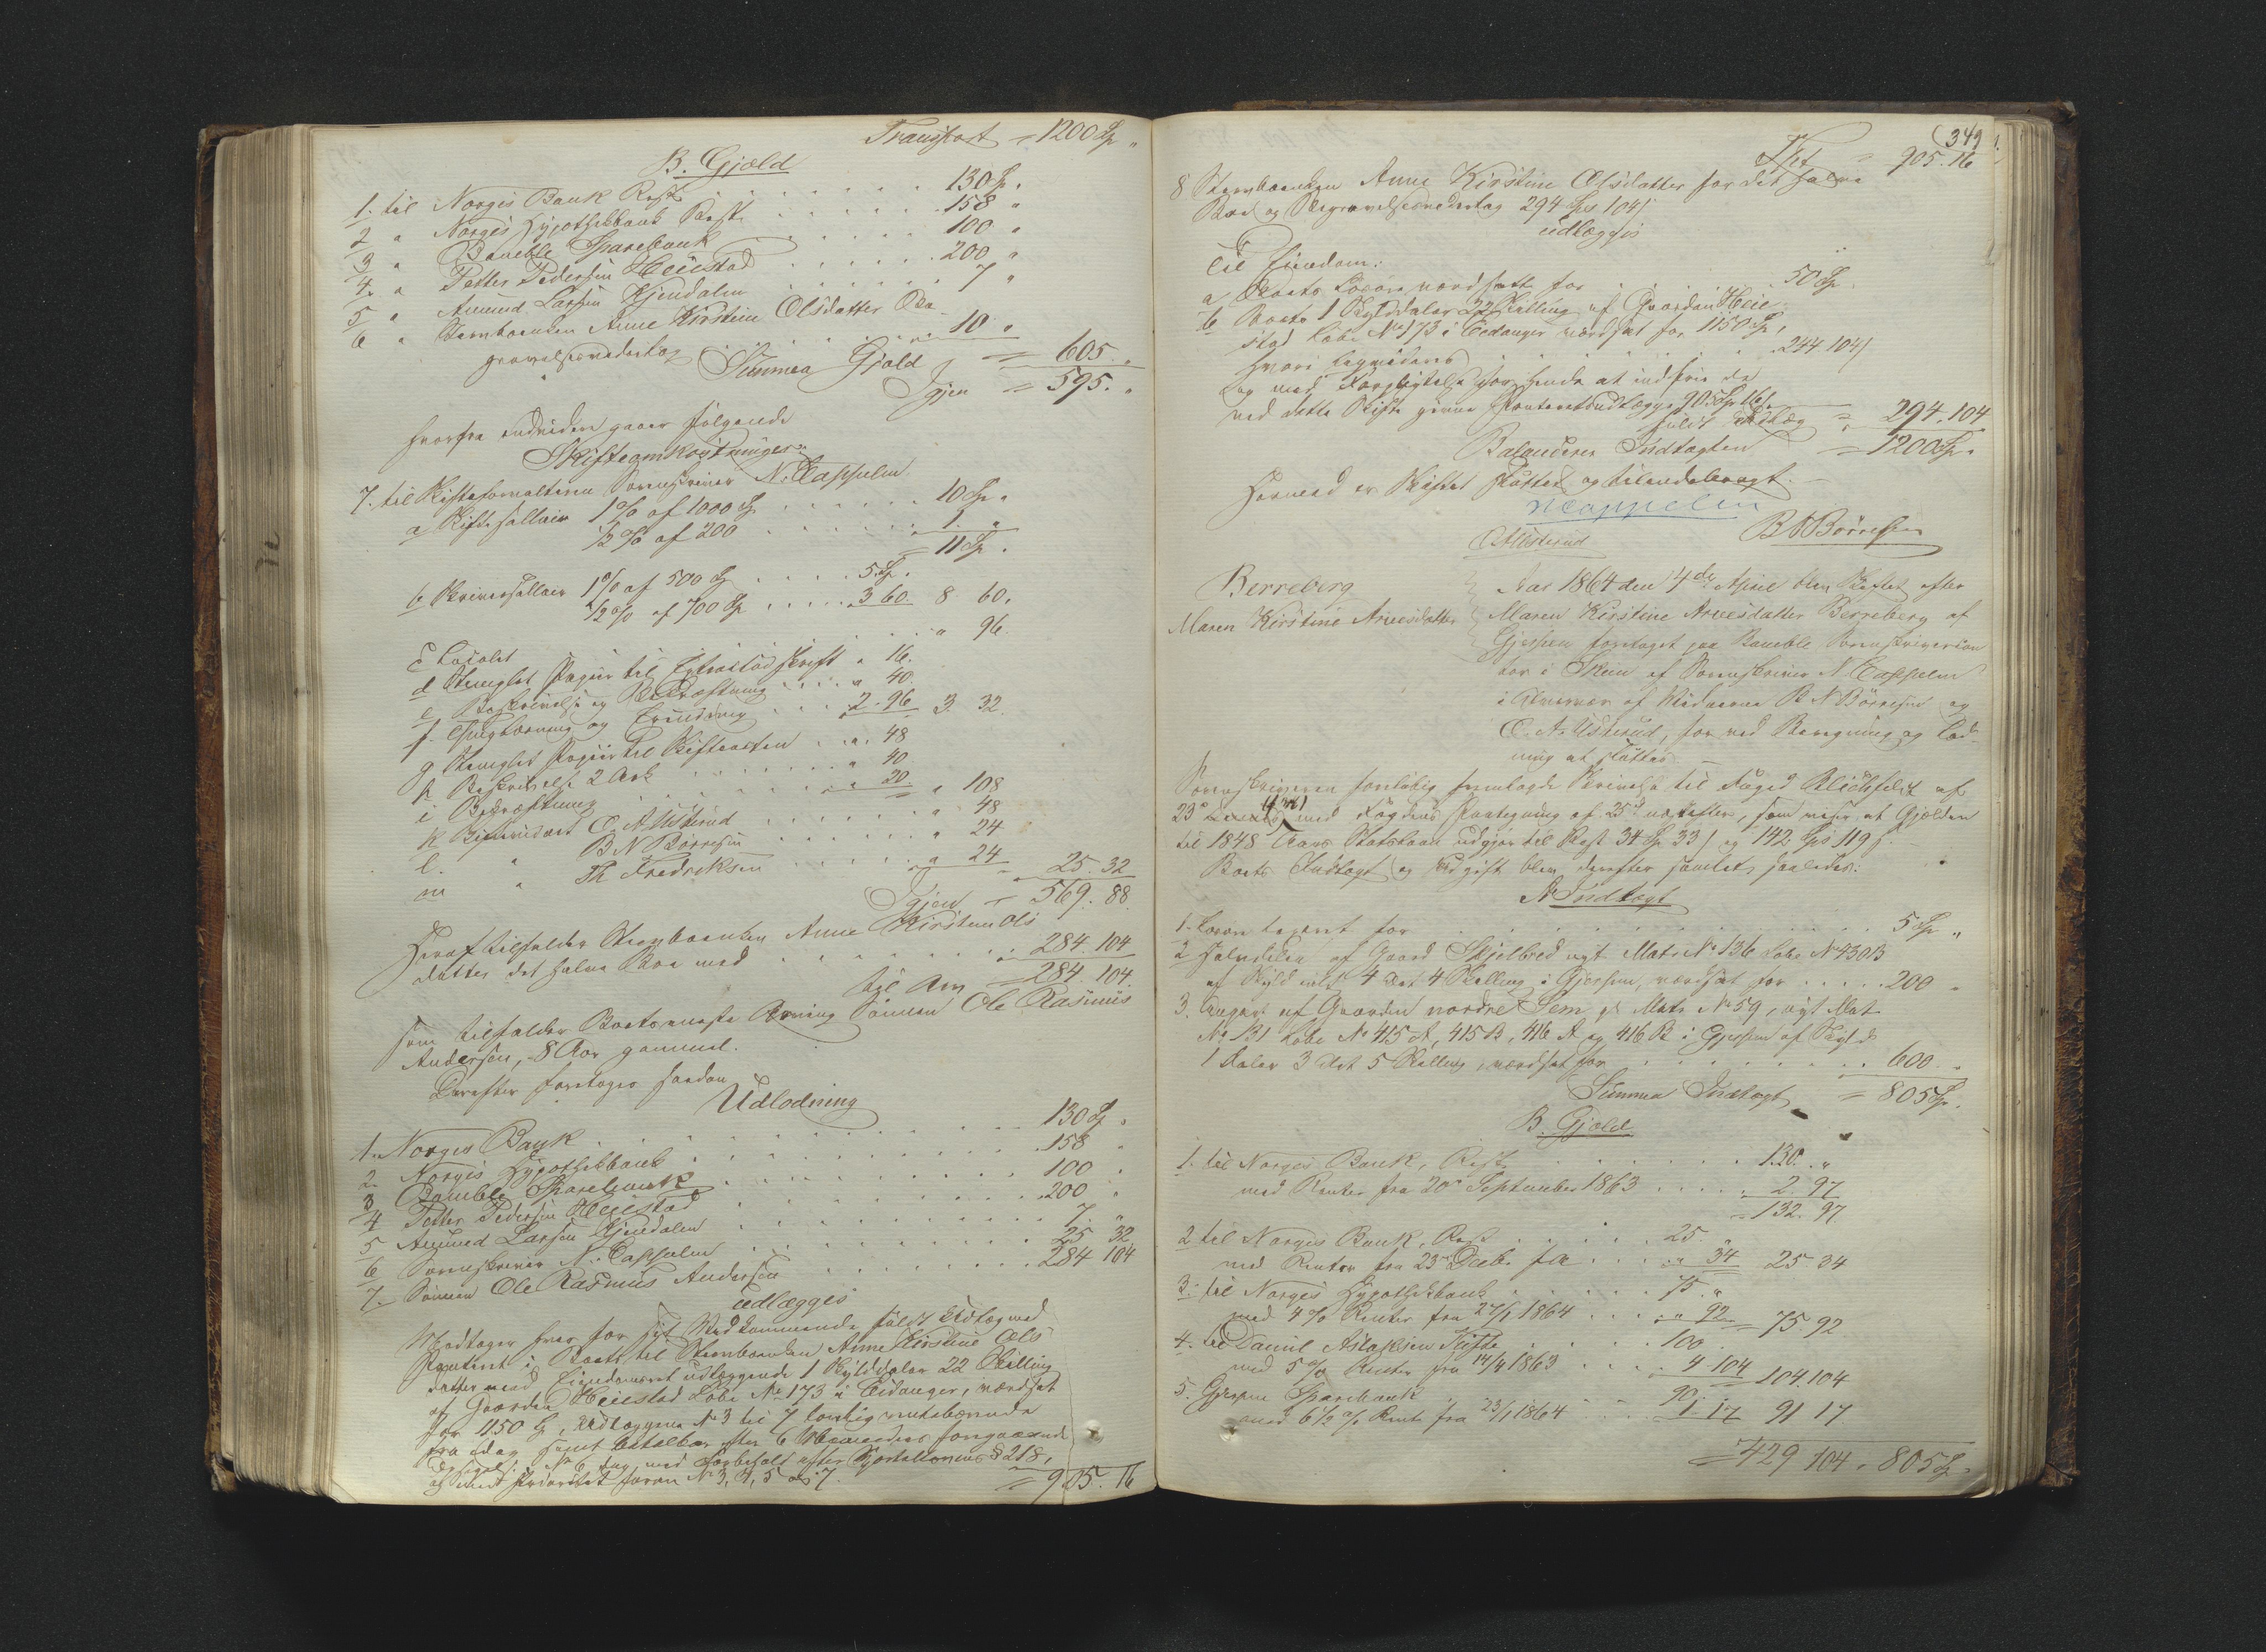 Transport = 1200 Sp "
B. Gjæld
1. til Norges Bank Rest . . . 130 Sp. "
2 " Norges Hypothekbank Rest . . . 158 "
3 " Bamble Sparebank . . . 100 "
4. " Petter Pedersen Heiestad . . . 200 "
5 " Amund Larsen Gjendalen . . . 7 "
6 " Stervboenken Anne Kirstine Olsdatter Be-
gravelsesvederlag . . . 10 "
Summa Gjæld = 605. "
Igjen = 595. "
hvorfra endvidere gaaer følgende
Skifteomkostninger:
7. til Skifteforvalteren Sorenskriver N. Cappelen
a Skiftesallair 1 % af 1000 Sp . . . 10 Sp "
1/2 % af 200 . . . 1. "
= 11 Sp.
b Skriversallair 1 % af 500 Sp . . . 5 Sp.
1/2 % af 700 Sp . . . 3 60. 8 60.
c Localet . . . " 96.
d Stemplet Papiir til Extraktudskrift " 16.
e Beskrivelse og Bekræftning . . . " 40.
f. Thinglæsning og . . . 2. 96 3. 32.
g Stemplet Papiir til Skifteakten . . " 48
h Beskrivelse 2 Ark . . . " 40
i Bekræftning . . . " 20 " 108
k Skiftevidnet C. A. Usterud . . . " 48
l. " B N Børresen . . . " 24
m " Th Fredriksen . . . " 24 25. 32
Igjen = 569. 88
Heraf tilfalder Stervboenken Anne Kirstine Ols
datter det halve Boe med . . . 284. 104
til Arv = 284 104.
som tilfalder Boets eneste Arving Sønnen Ole Rasmus
Andersen, 8 Aar gammel.
Derefter foretoges saadan
Udlodning
1. Norges Bank . . . 130 Sp "
2. Norges Hypothekbank . . . 158 "
3 Bamble Sparebank . . . 100 "
4 Petter Pedersen Heiestad . . . 200 "
5 Amund Larsen Gjendalen . . . 7. "
6 Sorenskriver N. Cappelen . . . 25. 32
7. Sønnen Ole Rasmus Andersen . . . 284 104
udlægges
Modtager hver for sit Vedkommende fuldt Udlæg med
Prioritet i Boets til Stervboenken Anne Kirstine Ols
datter med Eiendomsret udlæggende 1 Skylddaler 22 Skilling
af Gaarden Heiestad Løbe No 173 i Eidanger, værdsat
for 1150 Sp, Udlæggene No 3 til 7 lovlig rentebærende
fra idag samt betalbar efter 6 Maaneders foregaaende
Opsigelse, No 6 dog med Forbehold efter Sportellovens § 218,
og med Prioritet foran No 3, 4, 5 og 7. = 905. 16
349
Tpt = 905. 16
8 Stervboenken Anne Kirstine Olsdatter for det halve
Boe og Begravelsesvederlag 294 Sp 104 s
udlægges
til Eiendom:
a Boets Løsøre værdsatt for . . . 50 Sp.
b Boets 1 Skylddaler 22 Skilling af Gaarden Heie-
stad Løbe No 173 i Eidanger værdsat for 1150 Sp,
hvori . . . 244 104 s
og med Forpligtelse for hende at indfrie de
ved dette Skifte givne Prioritetsudlægge 905 Sp 16 s.
fuldt Udlæg = 294. 104
Balancerer Indtægten = 1200 Sp.
Hermed er Skiftet sluttet og tilendebragt. —
NCappelen
CAUsterud BNBörresen
Berreberg
Maren Kirstine Arnesdatter
Aar 1864 den 4de April blev Skiftet efter
Maren Kirstine Arnesdatter Berreberg af
Gjerpen foretaget paa Bamble Sorenskriverkon
tor i Skien af Sorenskriver N Cappelen
i Overvær af Vidnerne B N Börresen og
C. A. Usterud, for ved Beregning og Lod-
ning at sluttes. —
Sorenskriveren foreløbig fremlagde Skrivelse til Foged Blichfeldt af
23de med Fogdens Paategning af 25de næstefter, som viser at Gjælden
til 1848 Aars Statslaan udgjør til Rest 34 Sp 33 s og 142 Sp 119 s.
Boets Indtægt og Udgift blev derefter samlet saaledes:
A. Indtægt
1. Løsøre beløbet for . . . 5 Sp "
2 Halvdelen af Gaard Skjelbred nyt Matr No 136 Løbe No 430 B
af Skyld 4 Ort 4 Skilling i Gjerpen, værdsat for . . . 200 "
3. Anpart af Gaarden nordre Sem gl Matr No 59, nyt Mat
No 131 Løbe No 415 A, 415 B, 416 A og 416 B i Gjerpen af Skyld
1 Daler 3 Ort 5 Skilling, værdsat for . . . 600 "
Summa Indtægt = 805 Sp.
B. Gjæld
1. til Norges Bank, Rest . . . 130. "
med Renter fra 20de September 1863 . . . 2. 97
= 132. 97.
2 til Norges Bank, Rest . . . 25 "
med Renter fra 23de Decbr f A . . . " 34 25 34
3. til Norges Hypothekbank . . . 75. "
med 4 % Renter fra 27/1 1864 . . . " 92 = 75. 92
4. til Daniel Aslaksen Kiste . . . 100
med 5 % Renter fra 14/4 1863 . . . 4 104 104. 104
5. Gjerpen Sparebank . . . 90. "
med 6 1/2 % Rente fra 23/1 1864 . . . 1. 17 91 17
= 429 104 . 805 Sp.